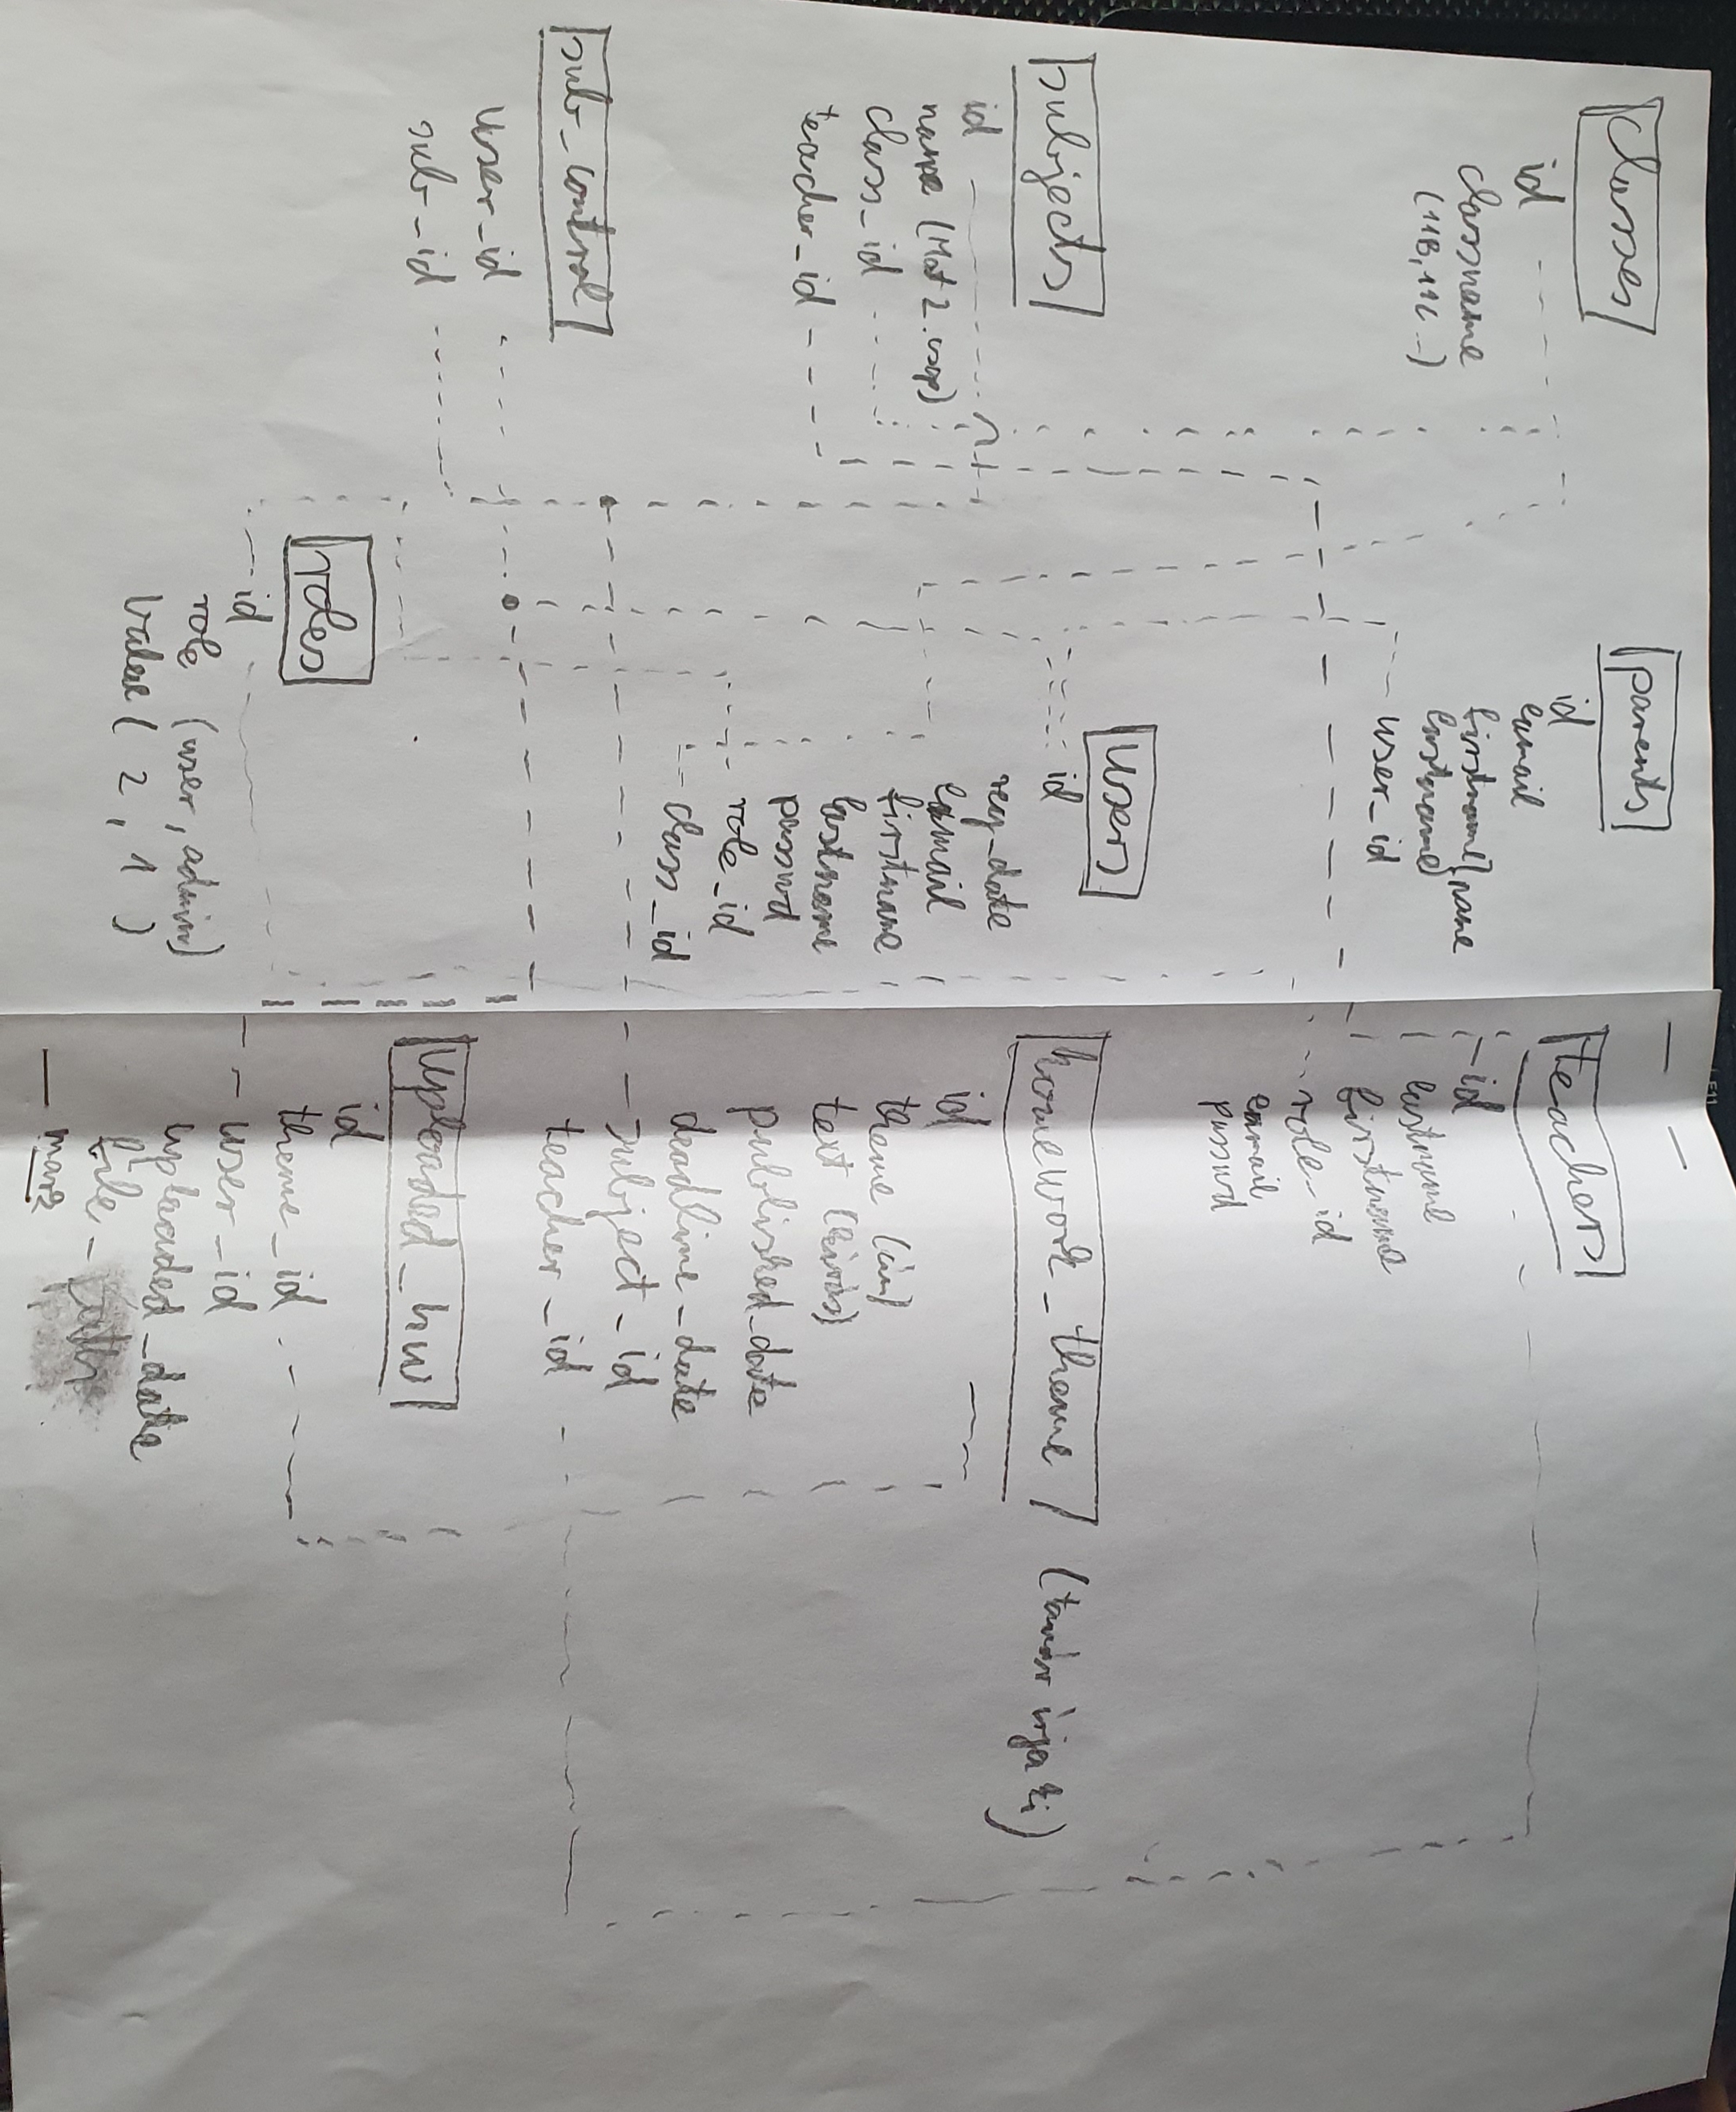 classes
id
classname
(11B, 11C ..)
subjects
id
name (Mat 2. csop)
class_id
teacher_id
sub_control
user_id
sub_id
parents
id
email
firstname } name
lastname
user_id
users
id
reg_date
email
firstname
lastname
passwd
role_id
class_id
roles
id
role (user, admin)
value ( 2 , 1 )
teachers
id
lastname
firstname
role_id
email
passwd
homework_theme (tanár írja ki)
id
theme (cím)
text (leírás)
published_date
deadline_date
subject_id
teacher_id
uploaded_hw
id
theme_id
user_id
uploaded_date
file_path
mark